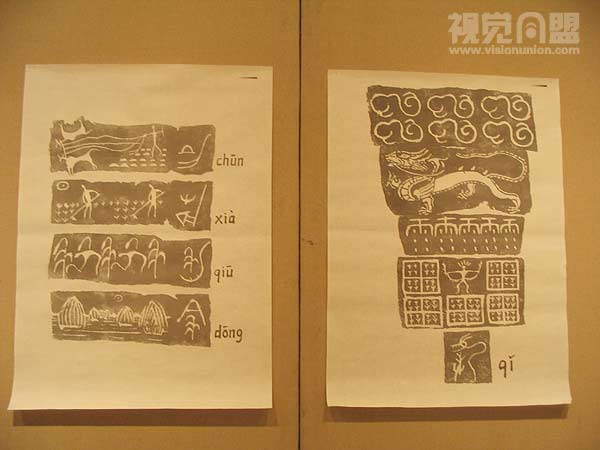 视觉同盟
www.visionunion.com
chūn
xià
qiū
dōng
qǐ